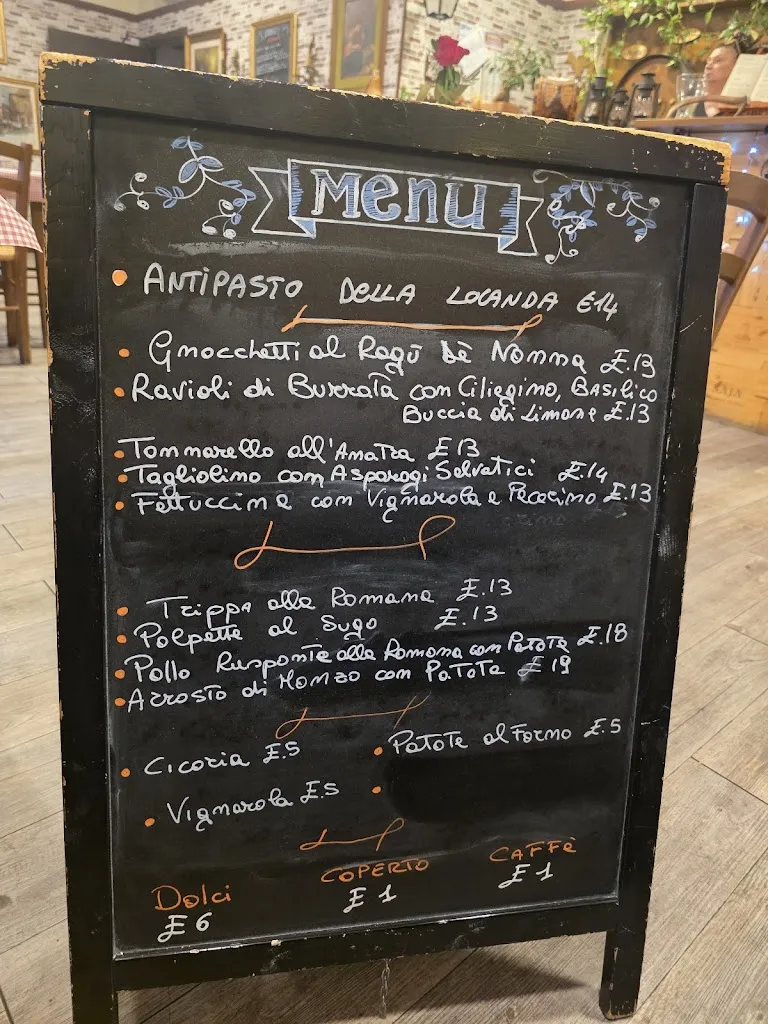 Menù
ANTIPASTO DELLA LOCANDA £14
Gnocchetti al Ragù dè Nonna £.13
Ravioli di Burrata con Ciliegino, BASilico
Buccia di Limone £.13
Tonnarello all'Amatra £13
Tagliolino con Asparagi Selvatici £.14
Fettuccine con Vignarola e Pecorino £.13
Trippa alla Romana £.13
Polpette al Sugo £.13
Pollo Ruspante alla Romana con Patate £.18
Arrosto di Manzo con Patate £19
Cicoria £.5
Patate al Forno £.5
Vignarola £.5
Dolci
£6
COPERTO
£1
CAFFÈ
£1